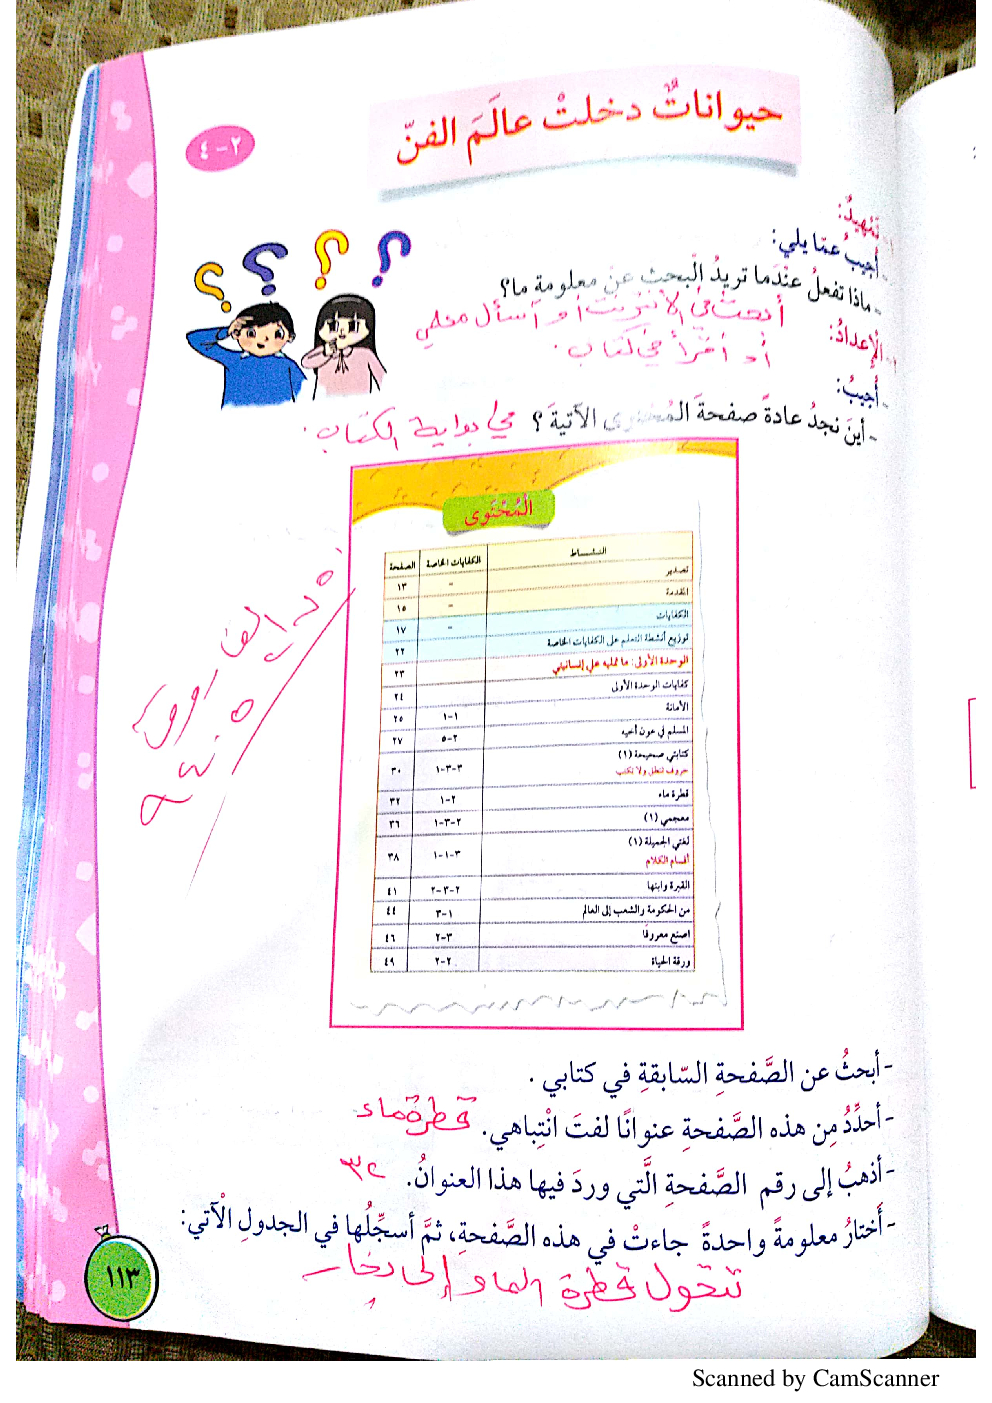 حيواناتٌ دخلتْ عالَمَ الفنّ
٢-٤
تمهيدٌ:
- أجيبُ عمّا يلي:
- ماذا تفعلُ عندَما تريدُ البحثَ عن معلومةٍ ما؟
أبحث في الأنترنت أو أسأل معلمي
الإعدادُ:
أو أقرأ في كتاب.
- أجيبُ:
- أينَ نجدُ عادةً صفحةَ المُحْتوى الآتيةَ؟ في بداية الكتاب.
المُحْتَوى
النشاط الكفايات الخاصة الصفحة
تصدير - ١٣
المقدمة - ١٥
الكفايات - ١٧
توزيع أنشطة التعلم على الكفايات الخاصة ٢٢
الوحدة الأولى: ما تمليه علي إنسانيتي ٢٣
كفايات الوحدة الأولى ٢٤
الأمانة ١-١ ٢٥
المسلم في عون أخيه ٢-٥ ٢٧
كتابتي صحيحة (١) ٣-٣-١ ٣٠
حروف تنطق ولا تكتب
قطرة ماء ٢-١ ٣٢
معجمي (١) ٢-٣-١ ٣٦
لغتي الجميلة (١) ٣-١-١ ٣٨
أقسام الكلام
القبرة وابنها ٢-٣-٢ ٤١
من الحكومة والشعب إلى العالم ١-٣ ٤٤
اصنع معروفا ٣-٢ ٤٦
ورقة الحياة ٢-٢ ٤٩
- أبحثُ عن الصَّفحةِ السّابقةِ في كتابي .
- أحدِّدُ مِن هذه الصَّفحةِ عنوانًا لفتَ انْتِباهي. قطرة ماء
- أذهبُ إلى رقم الصَّفحةِ الَّتي وردَ فيها هذا العنوانُ. ٣٢
- أَختارُ معلومةً واحدةً جاءتْ في هذه الصَّفحةِ، ثمَّ أسجِّلُها في الجدولِ الآتي:
تتحول قطرة الماء إلى بخار
١١٣
Scanned by CamScanner